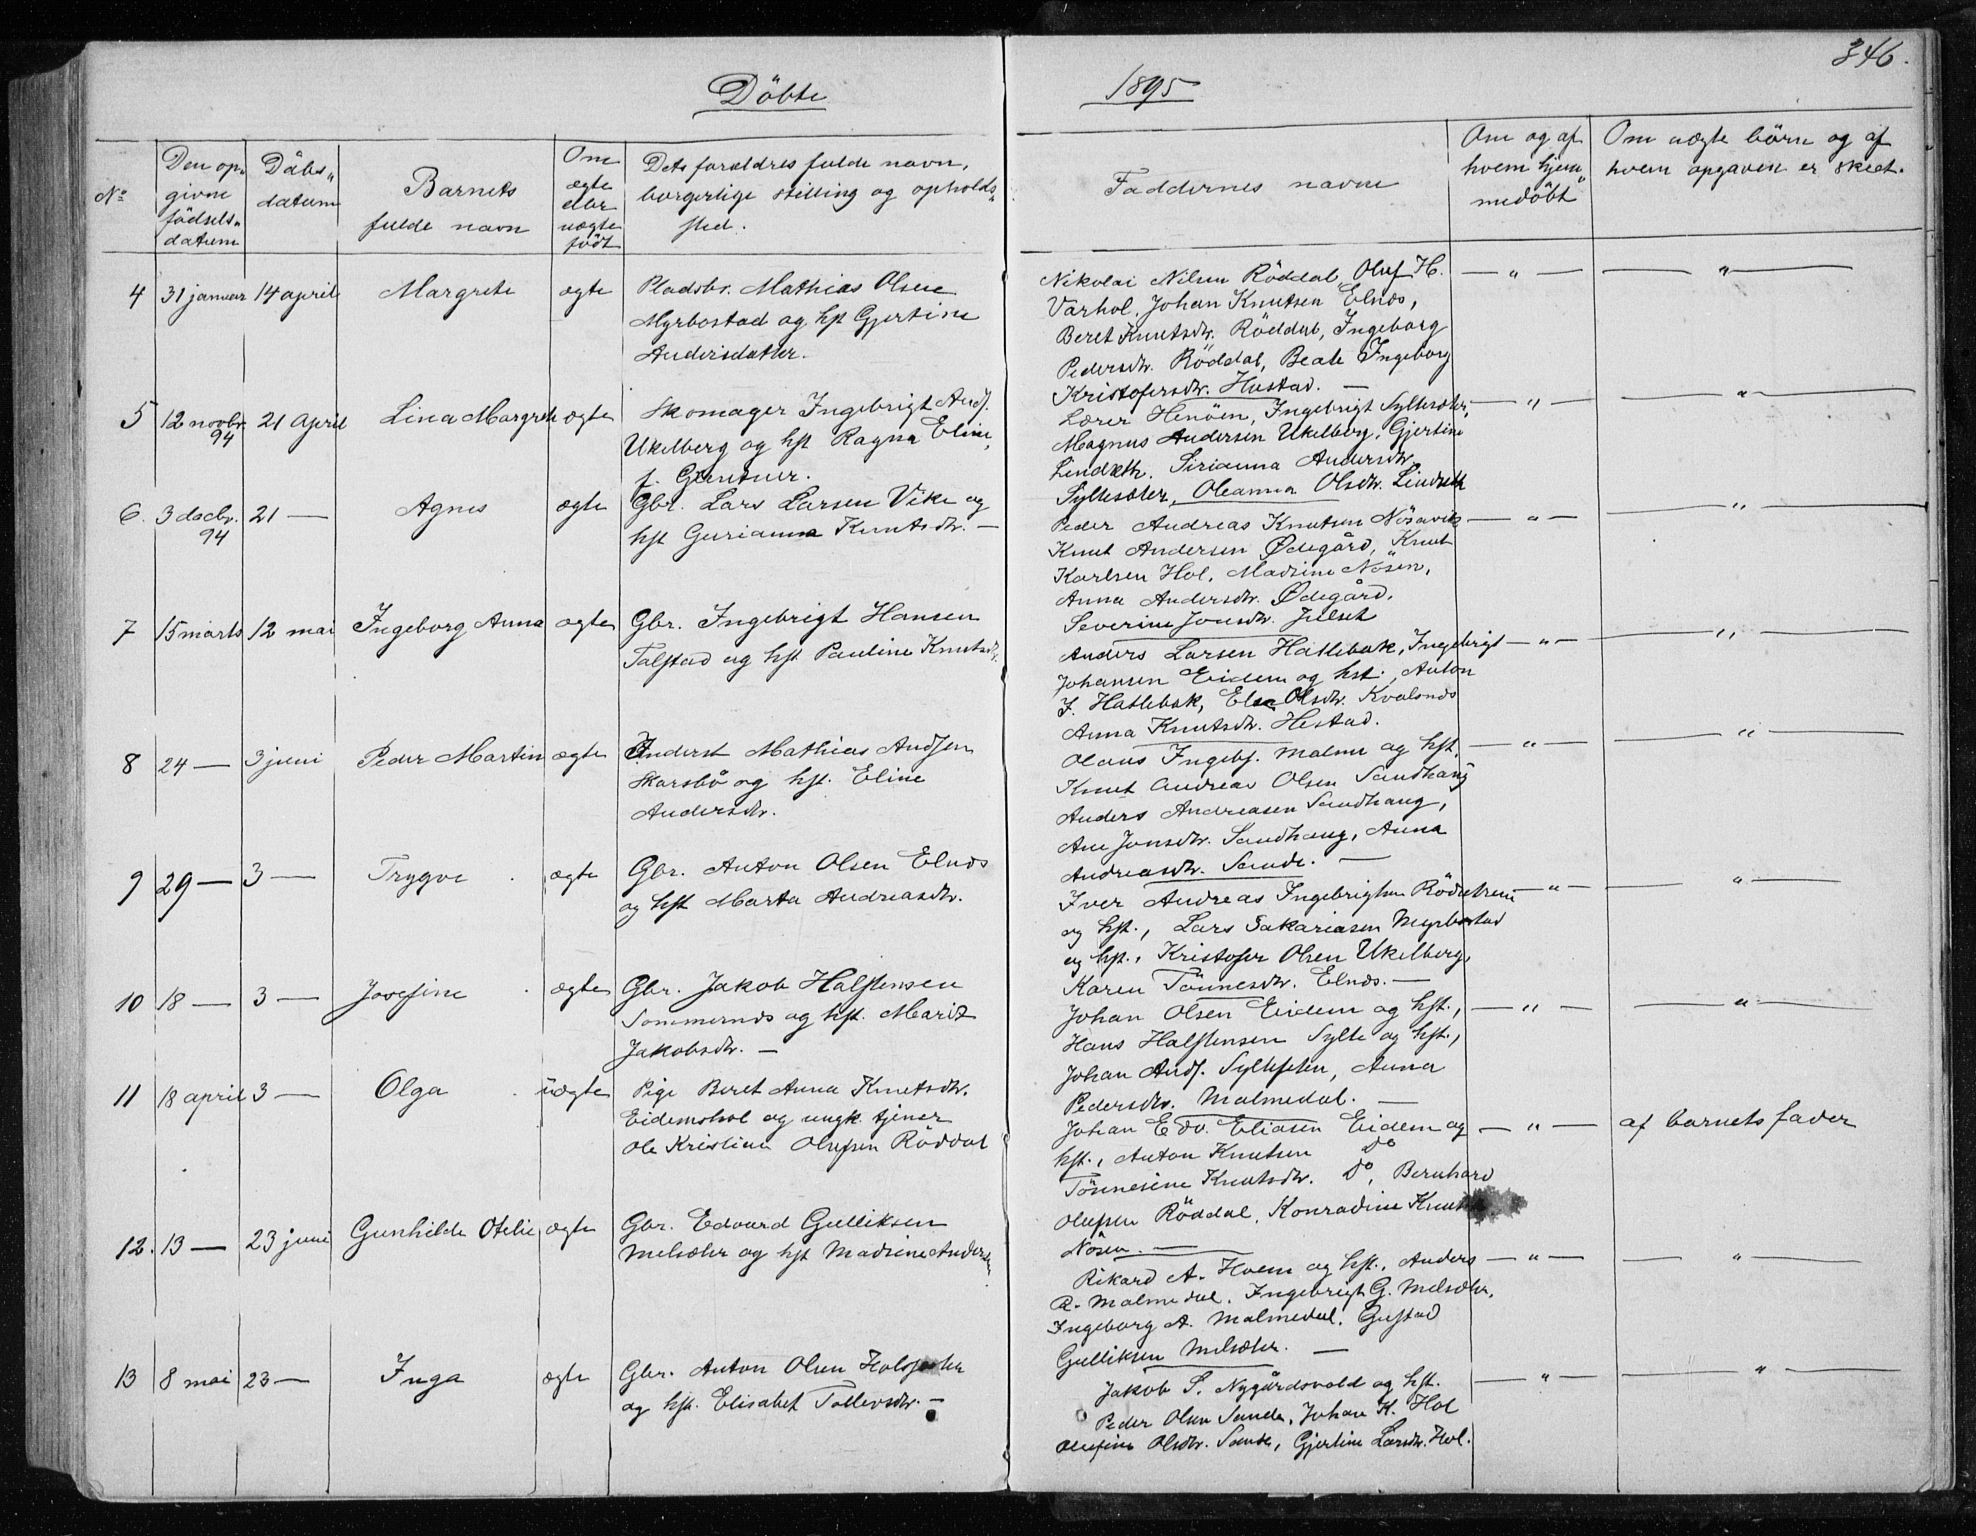 346.
Döbte
1895
No
Den op-
givne
födsels-
datum
Dåbs-
datum
Barnets
fulde navn
Om
ægte
eller
uægte
født
Dets forældres fulde navn,
borgerlige stilling og opholds-
sted.
Faddernes navne
Om og af
hvem hjem-
medöbt
Om uægte börn og af
hvem opgaven er skeet.
4 31 januar 14 april Margrete ægte
Pladsbr. Mathias Olsen
Myrbostad og hst Gjertine
Andersdatter.
Nikolai Nilsen Röddal, Oluf H.
Varhol, Johan Knutsen Elnæs,
Beret Knutsdtr. Röddal, Ingeborg
Pedersdtr. Röddal, Beate Ingeborg
Kristofersdtr. Hustad. —
— " — — " —
5 12 novbr. 94 21 April Lina Margrete ægte
Skomager Ingebrigt Andr.
Ukelberg og hst Ragna Eline,
f. Gjentner.
Lærer Henöen, Ingebrigt Syltesæter,
Magnus Andersen Ukelberg, Gjertine
Lindseth, Sirianna Andersdtr.
Syltesæter, Oleanna Olsdtr. Lindseth
— " — — " —
6. 3 decbr. 94 21 — Agnes ægte
Gbr. Lars Larsen Vike og
hst Gurianna Knutsdtr. —
Peder Andreas Knutsen Nösavik
Knut Andersen Ødegård, Knut
Karlsen Hol, Madsine Nösen,
Anna Andersdtr. Ødegård,
Severine Jonsdtr. Julset
— " — — " —
7 15 marts 12 mai Ingeborg Anna ægte
Gbr. Ingebrigt Hansen
Talstad og hst Pauline Knutsdtr.
Anders Larsen Hatlebak, Ingebrigt
Johansen Eidem og hst., Anton
I. Hatlebak, Else Olsdtr. Kvalsnæs
Anna Knutsdtr. Hestad.
— " — — " —
8 24 — 3 juni Peder Martin ægte
Inderst Mathias Andsen
Skarsbö og hst. Eline
Andersdtr.
Olaus Ingebr. Malme og hst,
Knut Andreas Olsen Sandhaug
Anders Andreasen Sandhaug,
Ane Jonsdtr. Sandhaug, Anna
Andreasdtr. Sande. —
— " — — " —
9 29 — 3 — Trygve ægte
Gbr. Anton Olsen Elnæs
og hst Marta Andreasdtr.
Iver Andreas Ingebrigtsen Rödseim
og hst., Lars Sakariasen Myrbostad
og hst., Kristofer Olsen Ukelberg,
Karen Tönnesdtr. Elnæs. —
— " — — " —
10 18 — 3 — Josefine ægte
Gbr. Jakob Halstensen
Sommernæs og hst. Marit
Jakobsdtr. —
Johan Olsen Eidem og hst.,
Hans Halstensen Sylte og hst.,
Johan Andr. Sylte, Anna
Pedersdtr. Malmedal. —
— " — — " —
11 18 april 3 — Olga uægte
Pige Beret Anna Knutsdtr.
Eidemshol og ungk. tjener
Ole Kristian Olufsen Röddal
Johan Edv. Eliasen Eidem og
hst., Anton Knutsen Do
Tönnesine Knutsdtr. Do, Bernhard
Olufsen Röddal, Konradine Knutsd
Nösen. —
— " — af barnets fader
12. 13 — 23 juni Gunhilde Otelie ægte
Gbr. Edvard Gulliksen
Melsæter og hst Madsine Andersen
Rikard A. Hoem og hst., Anders
A. Malmedal, Ingebrigt G. Melsæter,
Ingeborg A. Malmedal, Gustad
Gulliksen Melsæter. —
— " — — " —
13 8 mai 23 — Inga ægte
Gbr. Anton Olsen
og hst. Elisabet Tollevsdtr. —
Jakob S. Nygårdsvold og hst.
Peder Olsen Sande, Johan K. Hol
Olufine Olsdtr. Sande, Gjertine Larsdtr. Hol.
— " — — " —